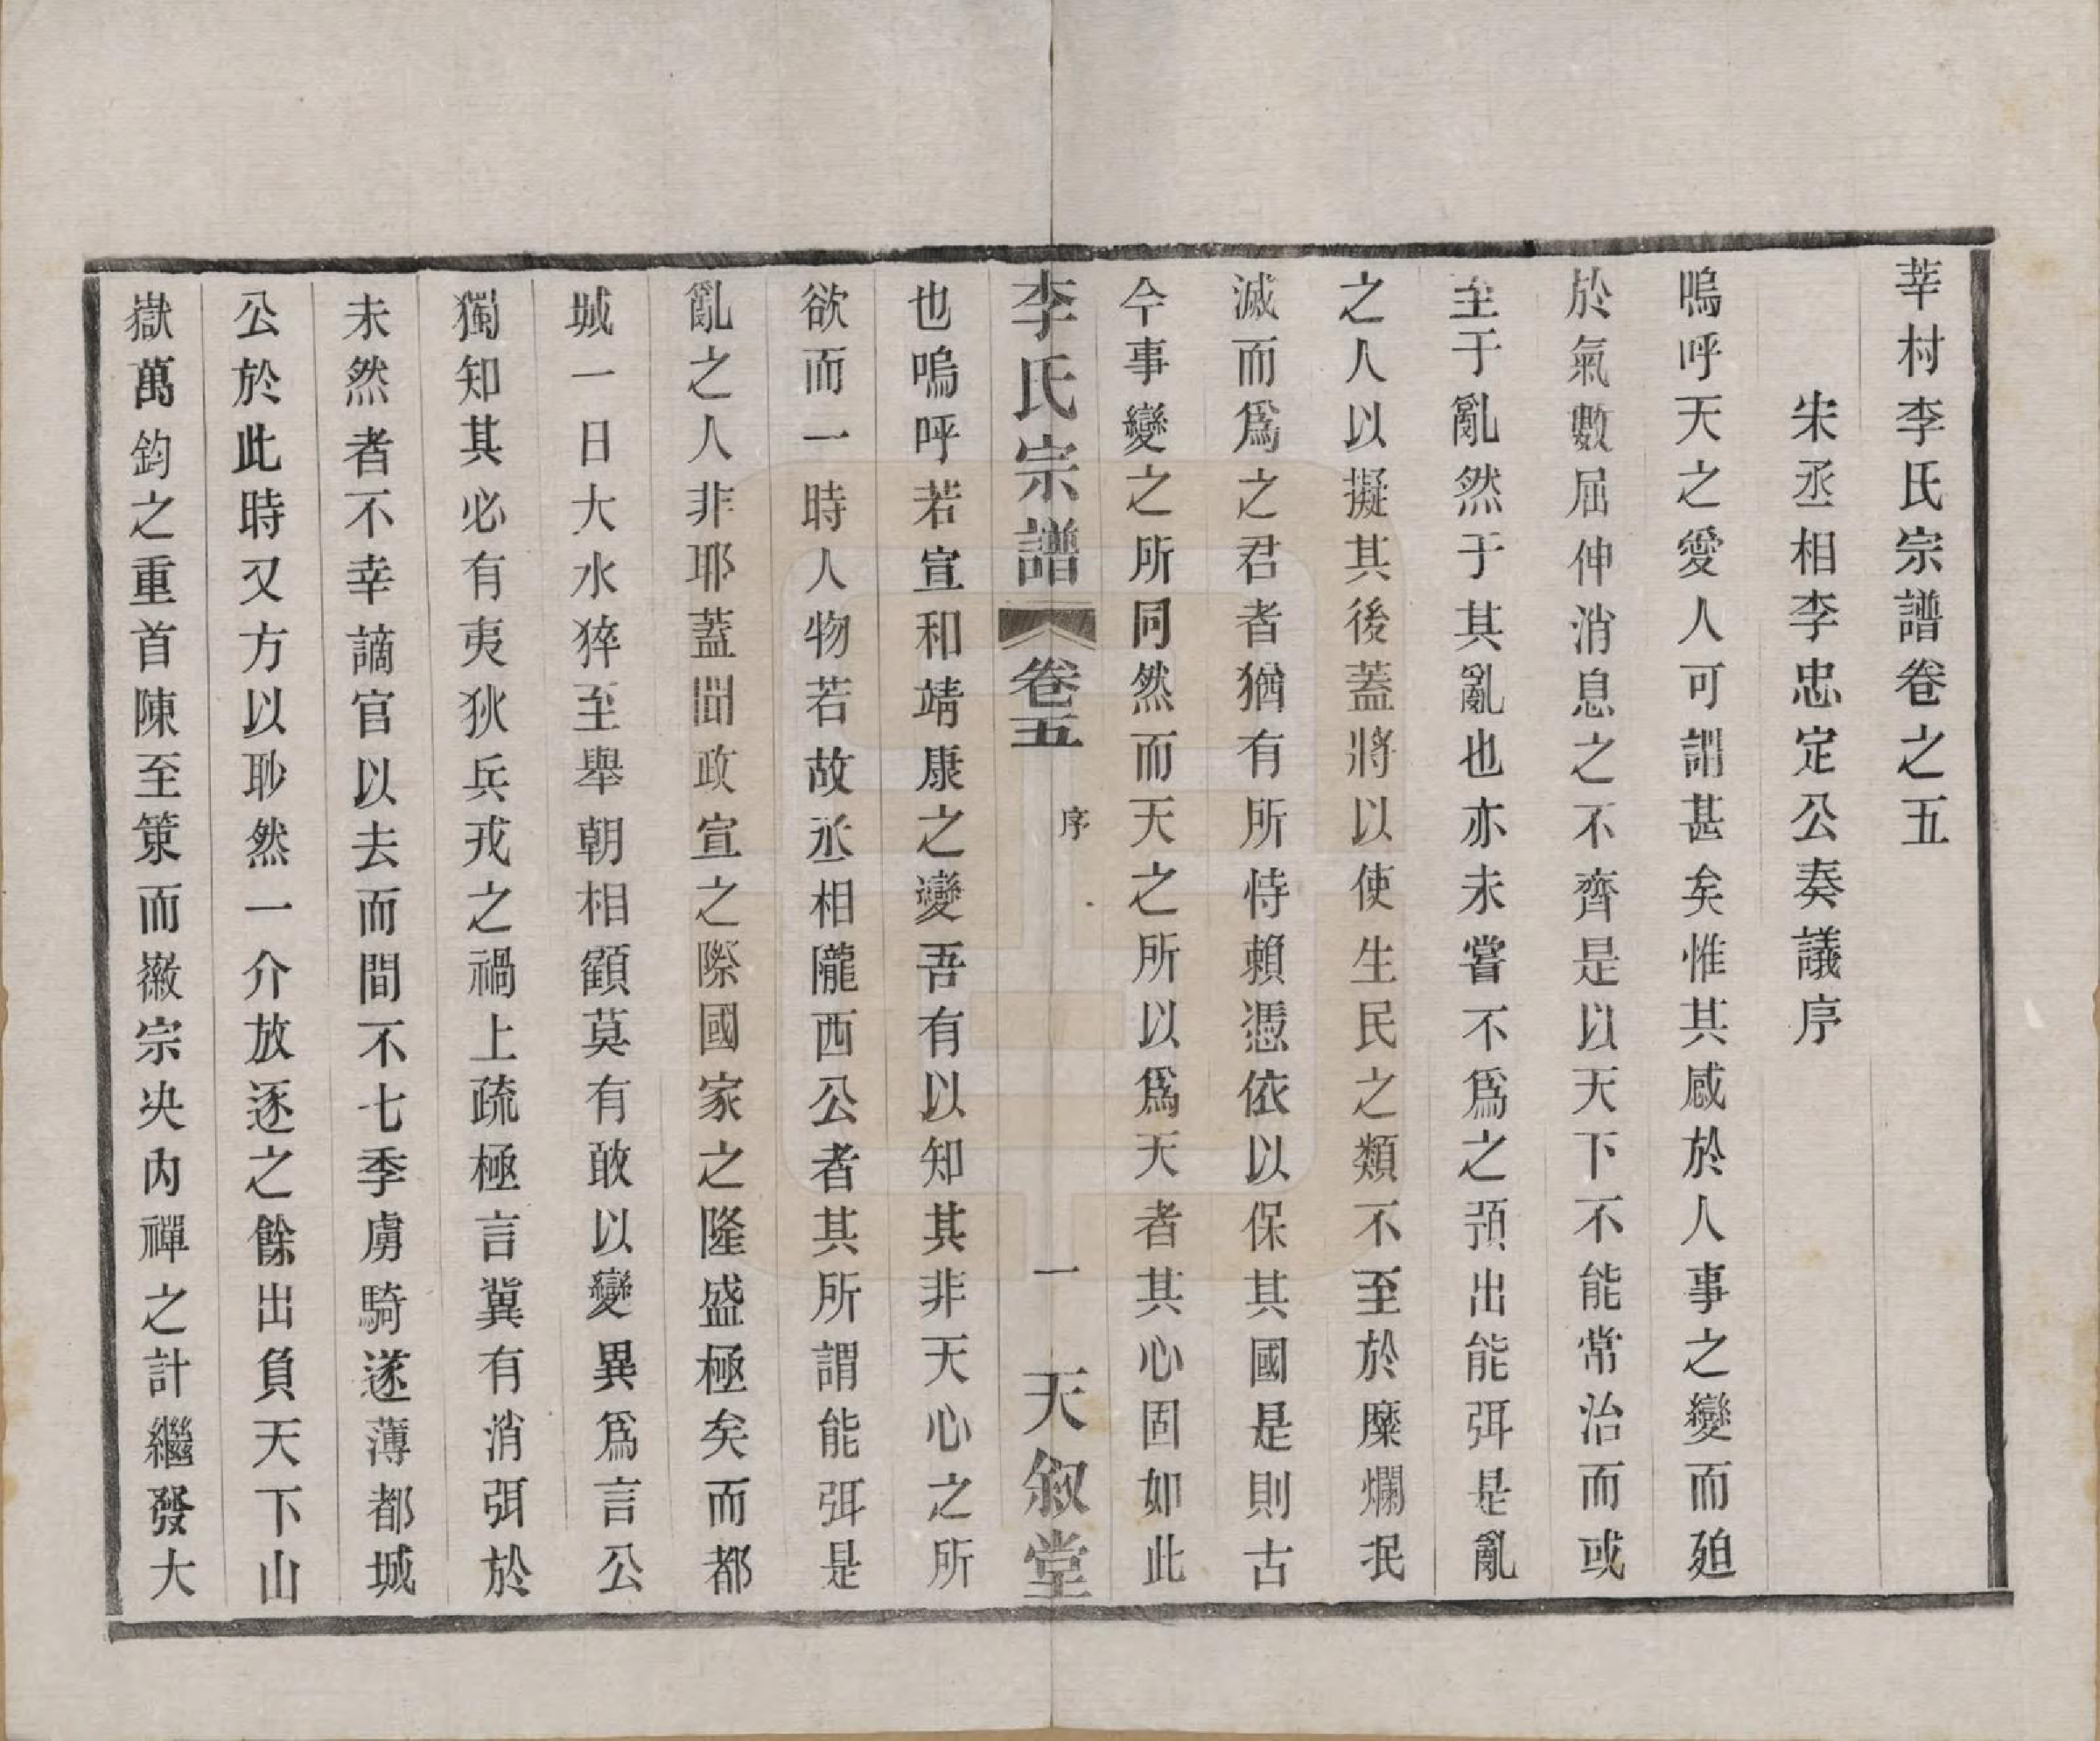 莘村李氏宗譜卷之五
宋丞相李忠定公奏議序
嗚呼天之愛人可謂甚矣惟其感於人事之變而廹
於氣數屈伸消息之不齊是以天下不能常治而或
至于亂然于其亂也亦未嘗不爲之預出能弭是亂
之人以擬其後蓋將以使生民之類不至於糜爛泯
滅而爲之君者猶有所恃賴憑依以保其國是則古
今事變之所同然而天之所以爲天者其心固如此
李氏宗譜 卷五 序 一 天叙堂
也嗚呼若宣和靖康之變吾有以知其非天心之所
欲而一時人物若故丞相隴西公者其所謂能弭是
亂之人非耶蓋聞政宣之際國家之隆盛極矣而都
城一日大水猝至舉朝相顧莫有敢以變異爲言公
獨知其必有夷狄兵戎之禍上疏極言冀有消弭於
未然者不幸謫官以去而間不七季虜騎遂薄都城
公於此時又方以眇然一介放逐之餘出負天下山
嶽萬鈞之重首陳至策而徽宗决內禪之計繼發大